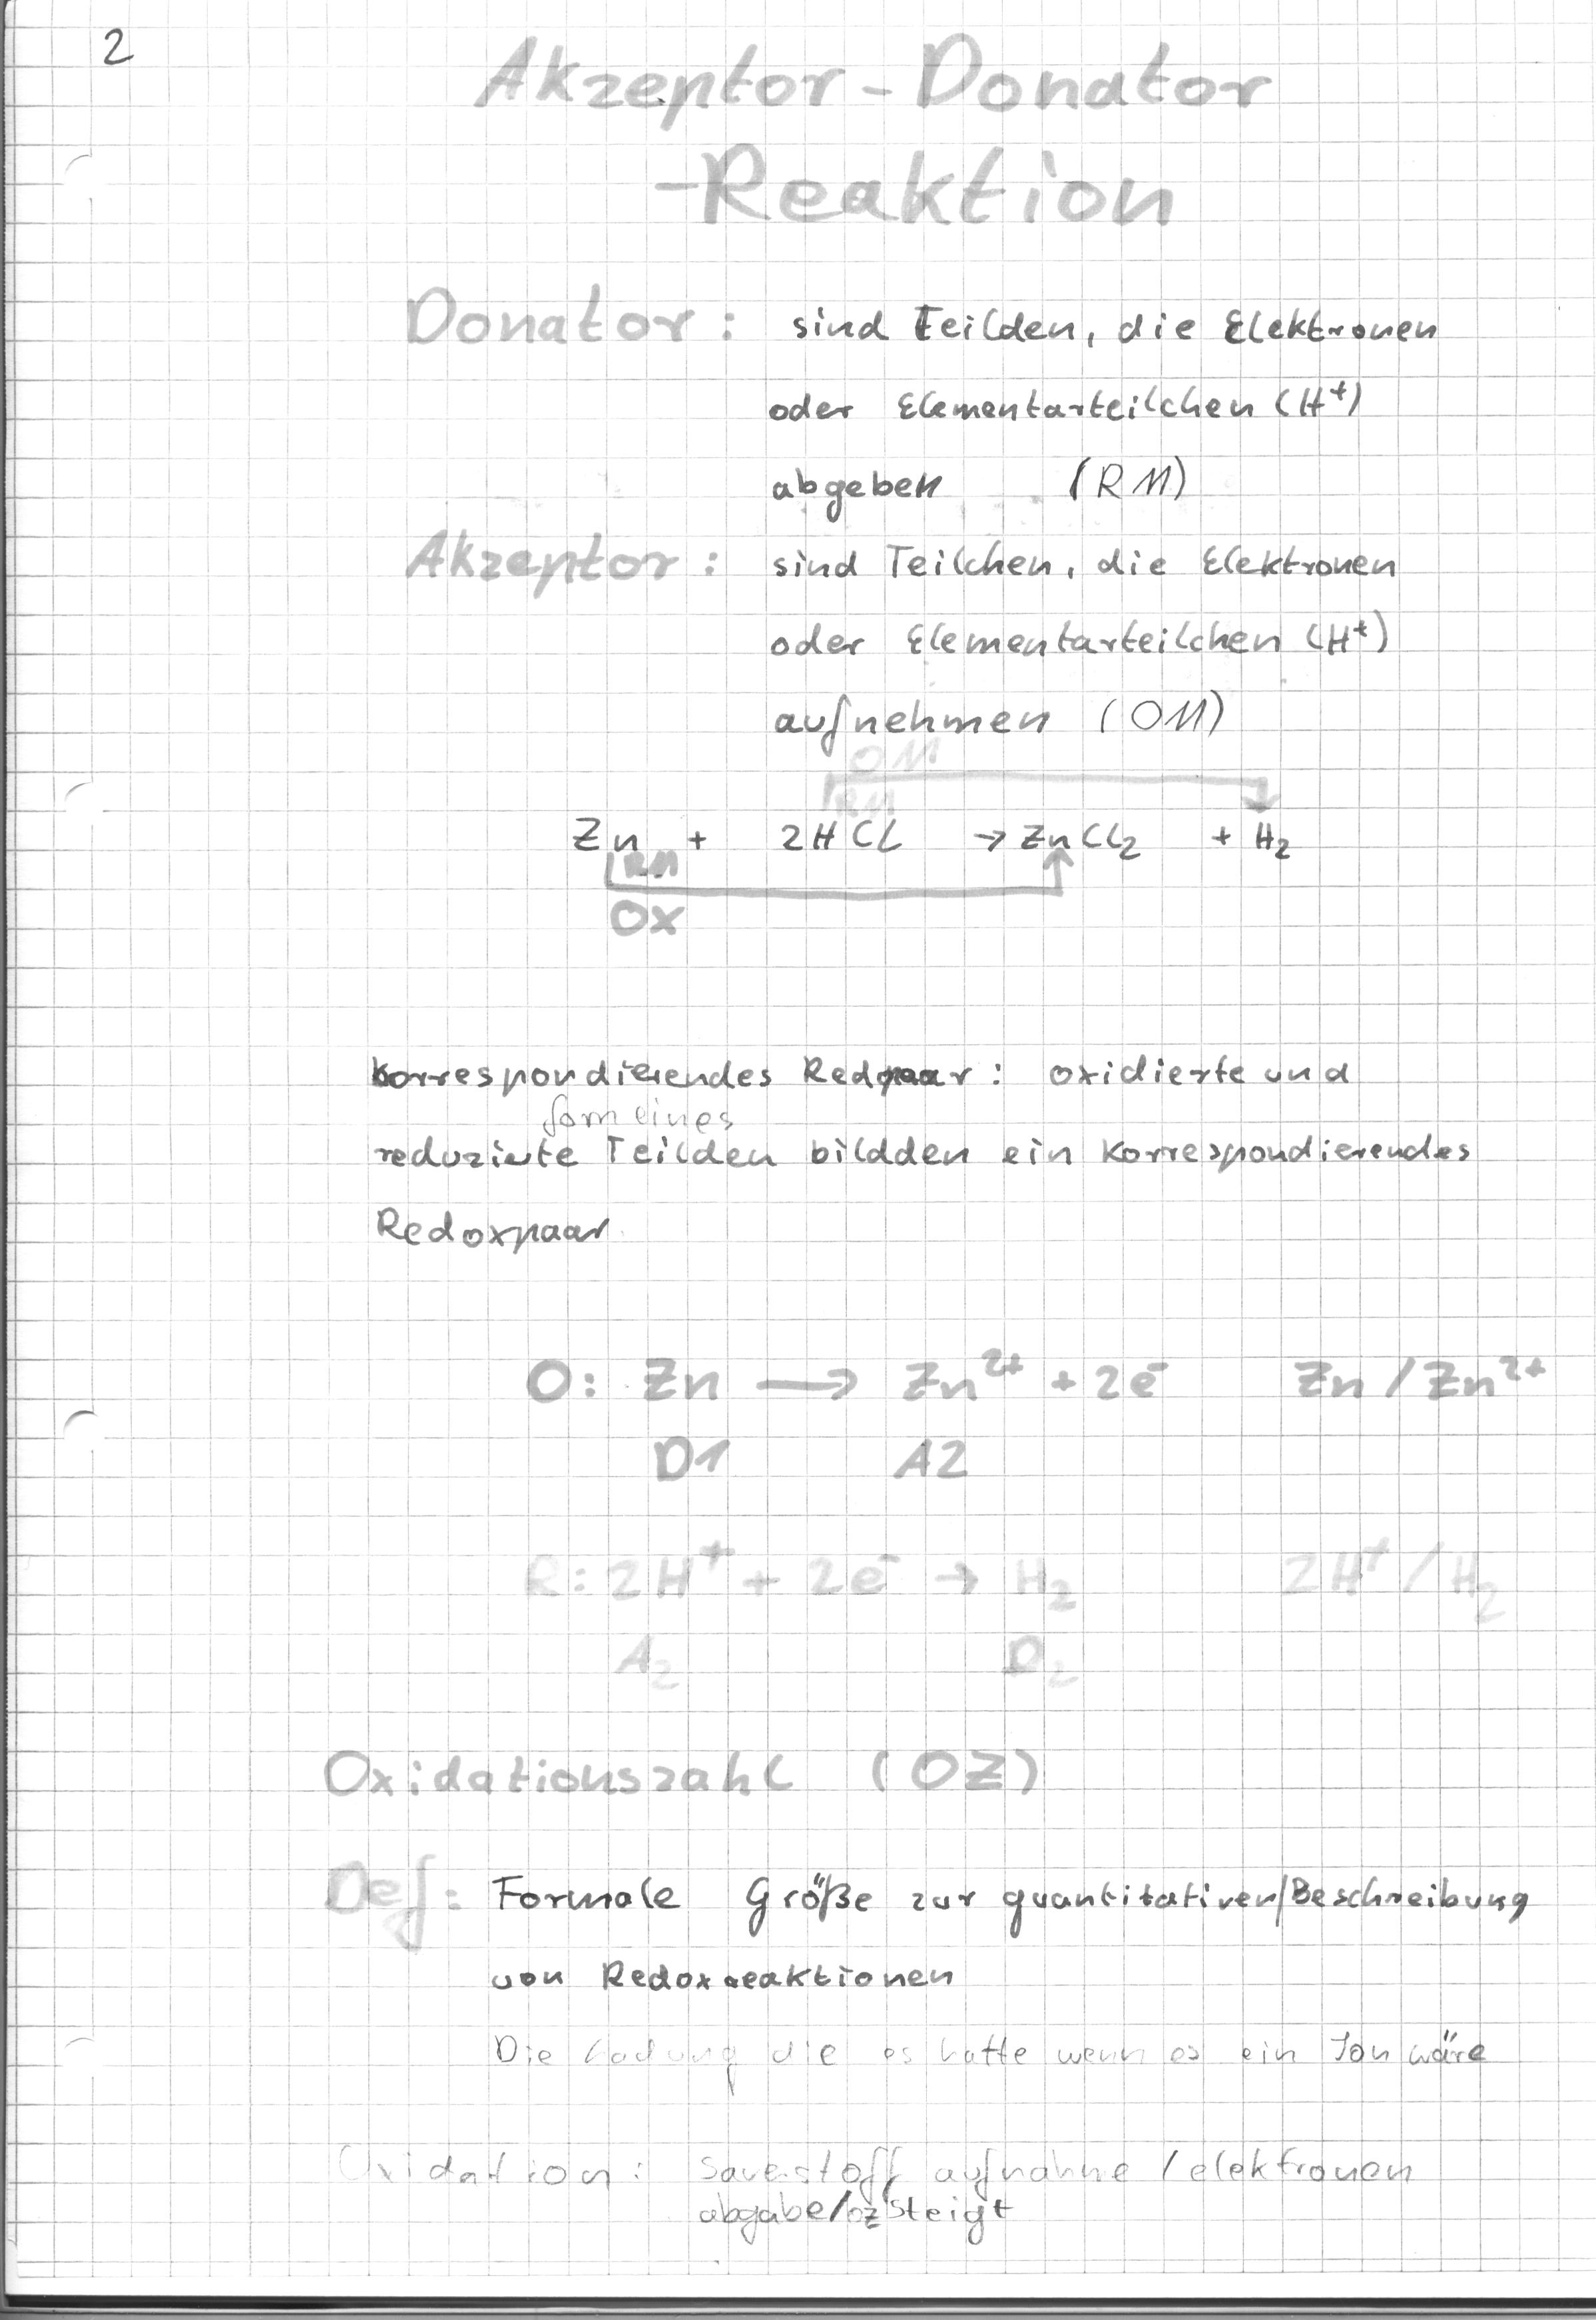 2
Akzeptor-Donator
-Reaktion
Donator: sind Teilden, die Elektronen
oder Elementarteilchen (H⁺)
abgeben (RM)
Akzeptor: sind Teilchen, die Elektronen
oder Elementarteilchen (H⁺)
aufnehmen (OM)
OM
RM
Zn + 2HCl → ZnCl₂ + H₂
RM
OX
korrespondierendes Redpaar: oxidierte und
form eines
reduzierte Teilden bildden ein korrespondierendes
Redoxpaar
O: Zn → Zn²⁺ + 2e⁻ Zn/Zn²⁺
D1 A2
R: 2H⁺ + 2e⁻ → H₂ 2H⁺/H₂
A₂ D₂
Oxidationszahl (OZ)
Def: Formale Größe zur quantitativen/Beschreibung
von Redoxreaktionen
Die Ladung die es hätte wenn es ein Ion wäre
Oxidation: Sauerstoff aufnahne / elektronen
abgabe/oz steigt